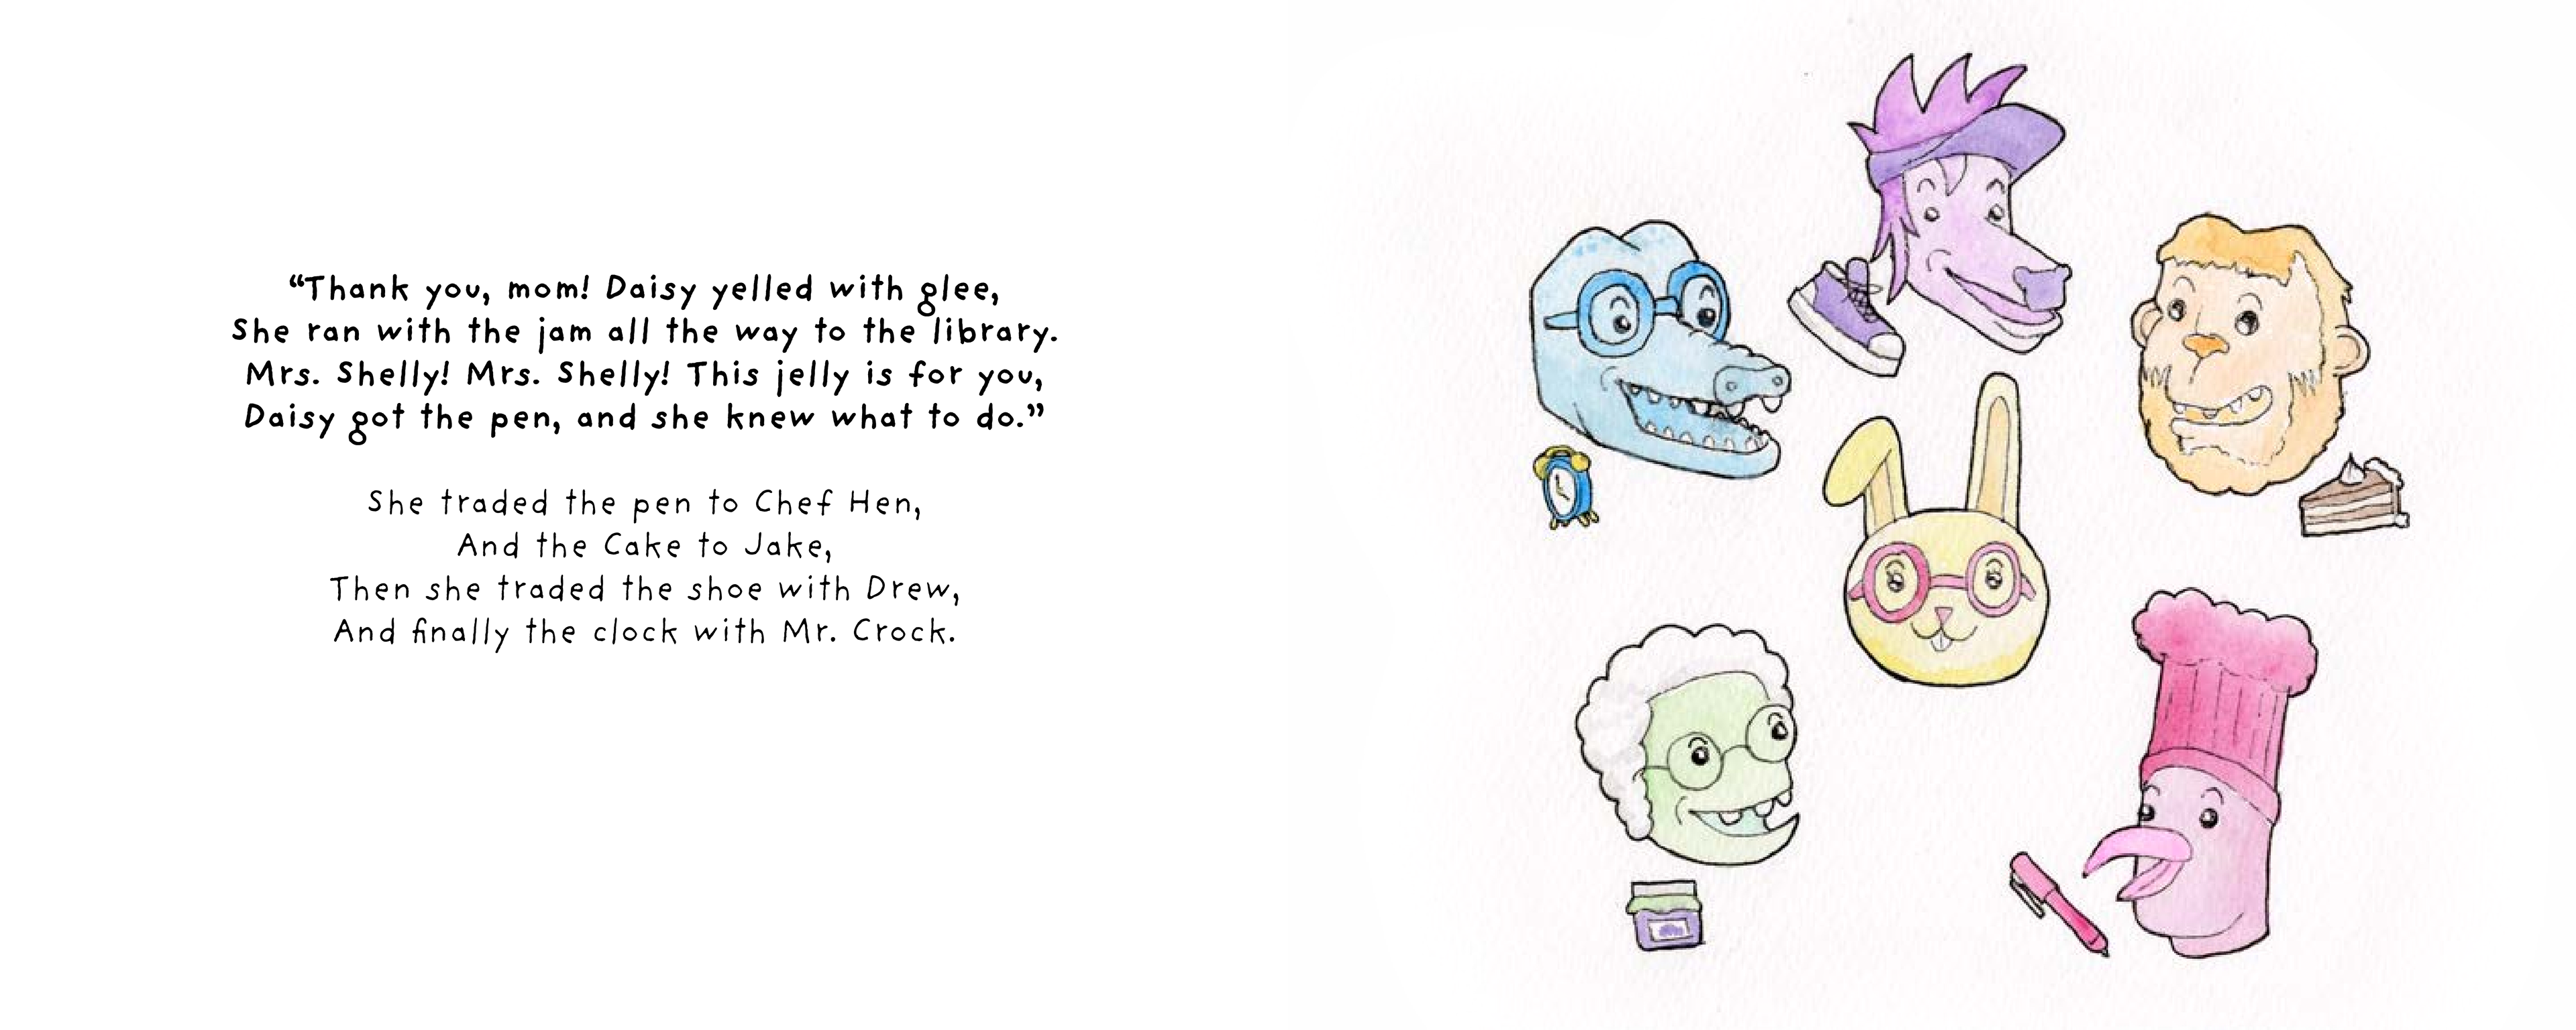 “Thank you, mom! Daisy yelled with glee,
She ran with the jam all the way to the library.
Mrs. Shelly! Mrs. Shelly! This jelly is for you,
Daisy got the pen, and she knew what to do.”
She traded the pen to Chef Hen,
And the Cake to Jake,
Then she traded the shoe with Drew,
And finally the clock with Mr. Crock.